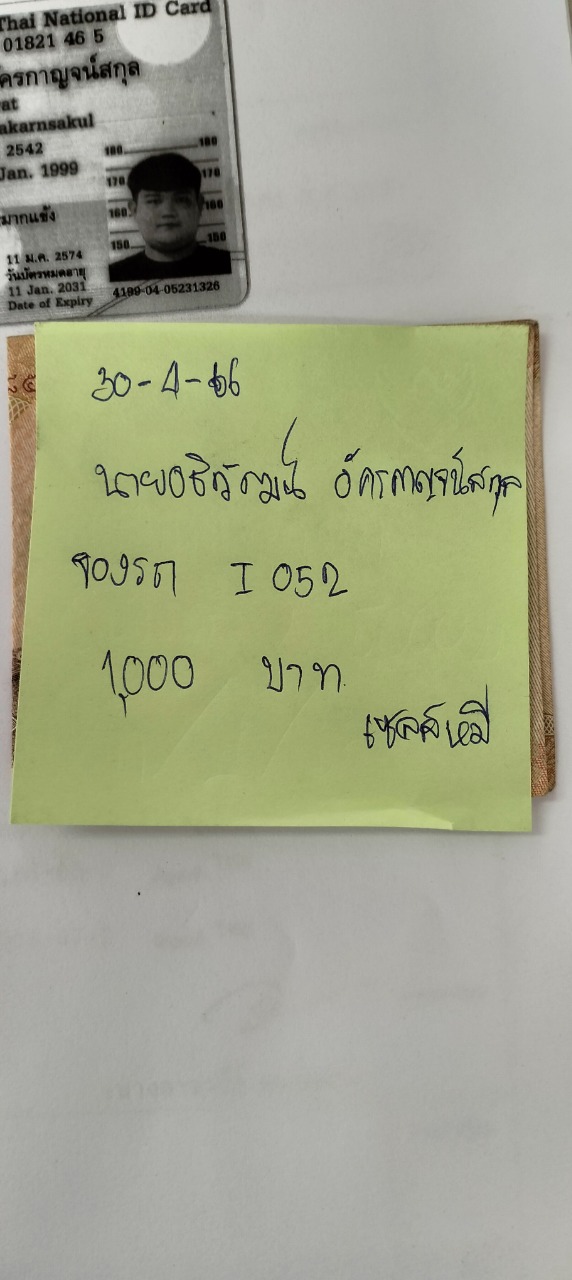 Thai National ID Card
01821 46 5
ครกาญจน์สกุล
akarnsakul
2542
Jan. 1999
180 180
170 170
160 160
150 150
หมากแข้ง
11 ม.ค. 2574
วันบัตรหมดอายุ
11 Jan. 2031
Date of Expiry
4199-04-05231326
30-4-66
นายอธิวัฒน์ อัครกาญจน์สกุล
จองรถ I 052
1,000 บาท
เซลล์หมี